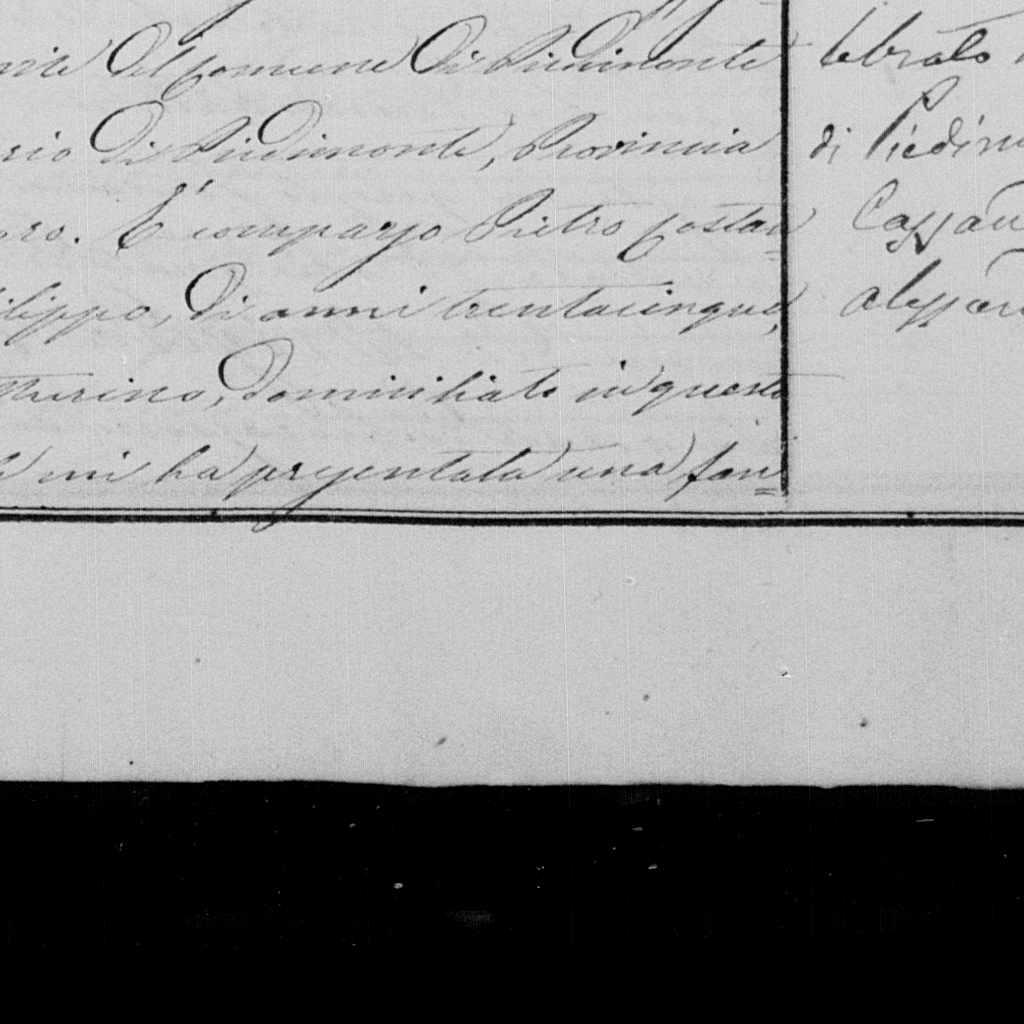 del Comune di Piedimonte
di Piedimonte, Provincia
È comparso Pietro Costan=
ilippo, di anni trentacinque,
domiciliato in questo
mi ha presentata una fan=
lebrato
di Piedim
Cassan
Alessan